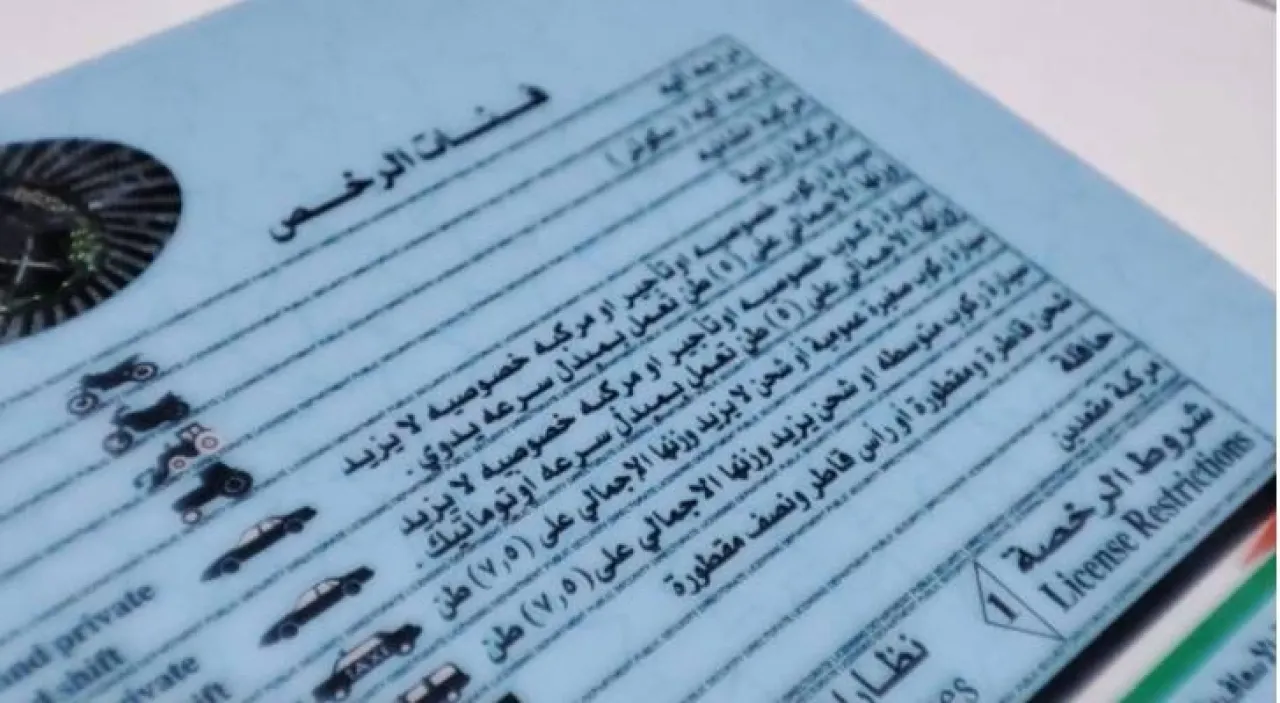 فئات الرخص
دراجة آلية
دراجة آلية (سكوتر)
مركبة
مركبة زراعية
سيارة ركوب خصوصية او تأجير او مركبه خصوصيه لا يزيد
وزنها الاجمالي على (٥) طن تعمل بمبدل سرعه يدوي.
سيارة ركوب خصوصية او تأجير او مركبه خصوصيه لا يزيد
وزنها الاجمالي على (٥) طن تعمل بمبدل سرعه اوتوماتيك.
سيارة ركوب صغيرة عمومية او شحن لا يزيد وزنها الاجمالي على (٧,٥) طن
سيارة ركوب متوسطه او شحن يزيد وزنها الاجمالي على (٧,٥) طن
شحن قاطرة ومقطورة او رأس قاطر ونصف مقطورة
حافلة
مركبة مقعدين
شروط الرخصة
License Restrictions
1
and private
shift
private
TAXI